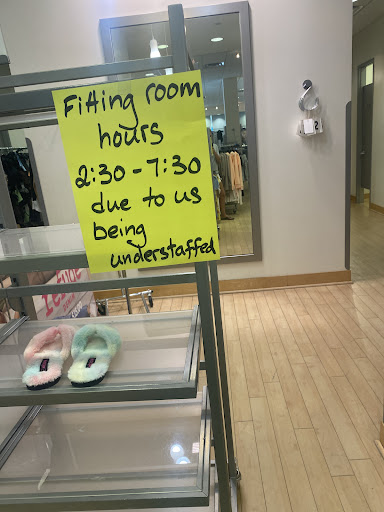 Fitting room
hours
2:30 - 7:30
due to us
being
understaffed